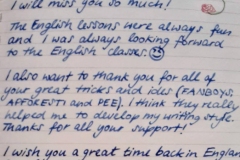 I will miss you so much!
The English lessons were always fun
and I was always looking forward
to the English classes.
I also want to thank you for all of
your great tricks and ideas (FANBOYS,
AFFORESTI and PEE). I think they really
helped me to develop my writing style.
Thanks for all your support!
I wish you a great time back in Englan